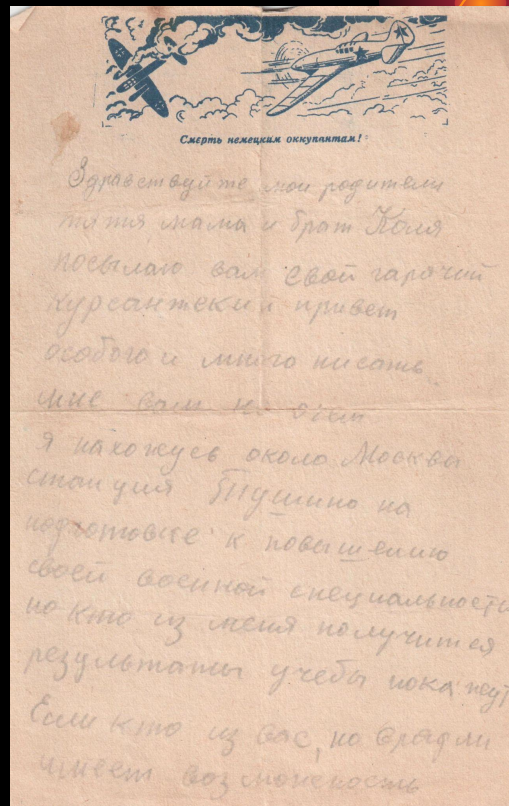 Смерть немецким оккупантам!
Здравствуйте мои родители
тятя мама и брат Коля
посылаю вам свой гарячий
курсантский привет
особого и много писать
мне вам не о чем
я нахожусь около Москвы
станция Тушино на
подготовке к повышению
своей военной специальности
но кто из меня получится
результаты учебы покажут
Если кто из вас, но
имеет возможность